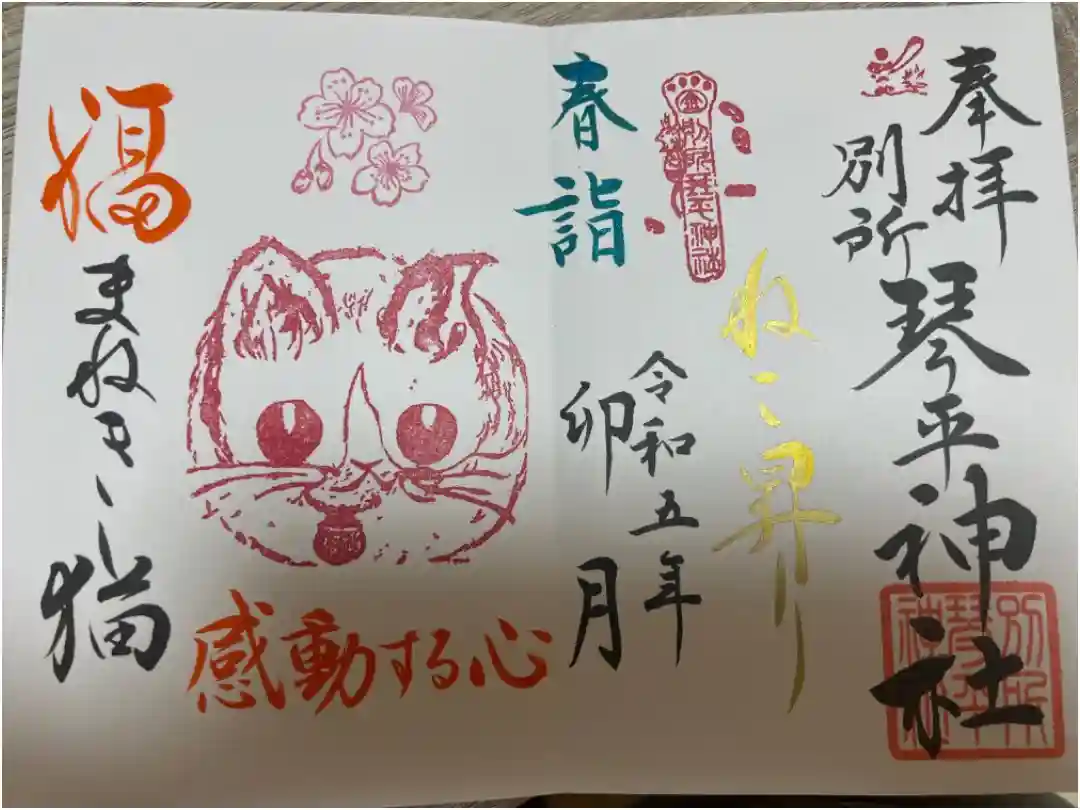 奉拝
別所
琴平神社
別所琴平神社
ねこ昇
金別所琴平神社
春詣
令和五年
卯月
感動する心
福まねきこ猫